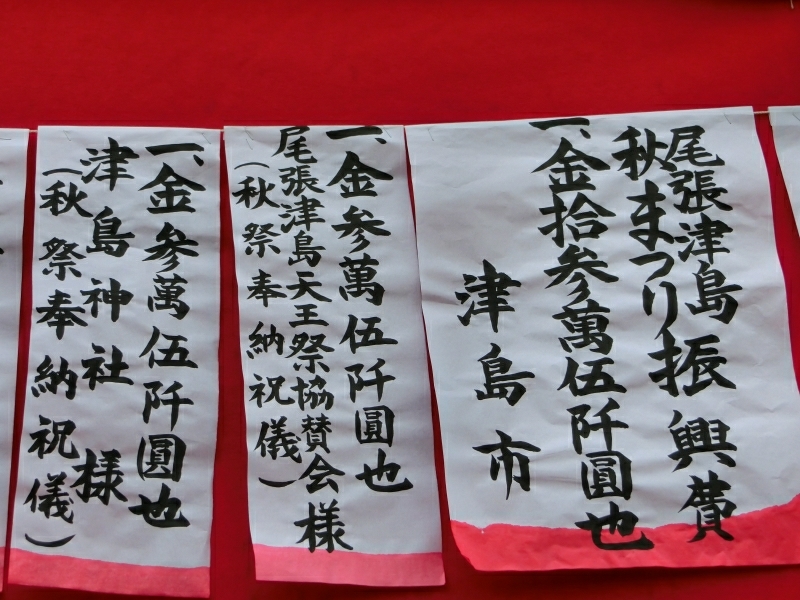 尾張津島
秋まつり振興費
一、金拾参萬伍阡圓也
津島市
一、金参萬伍阡圓也
尾張津島天王祭協賛会様
(秋祭奉納祝儀)
一、金参萬伍阡圓也
津島神社様
(秋祭奉納祝儀)